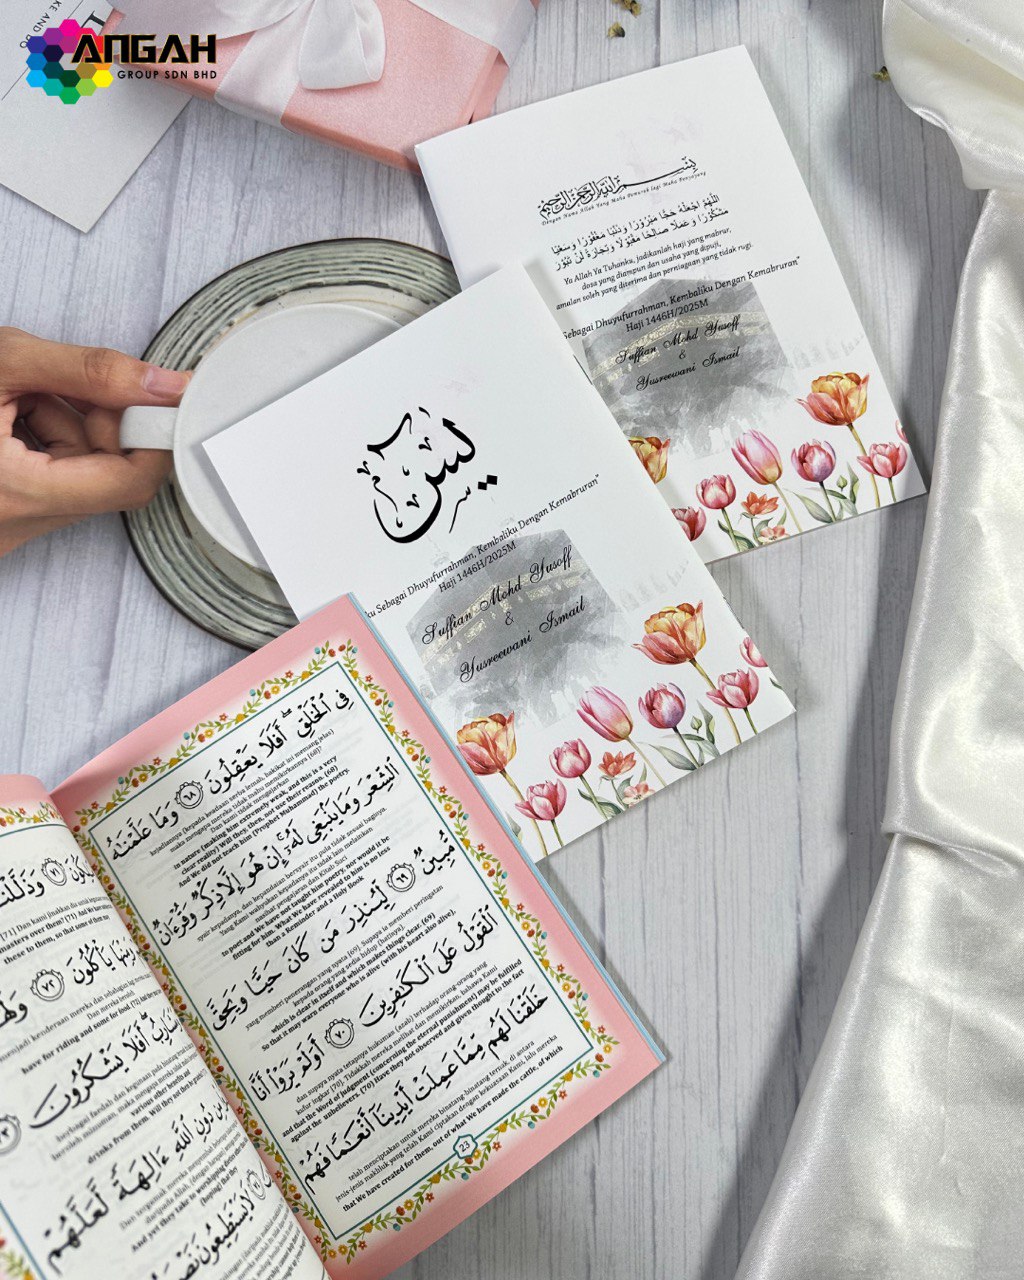 ANGAH
GROUP SDN BHD
KE AND DO
بِسْمِ اللَّهِ الرَّحْمَنِ الرَّحِيمِ
Dengan Nama Allah Yang Maha Pemurah lagi Maha Penyayang
اللَّهُمَّ اجْعَلْهُ حَجًّا مَبْرُورًا وَذَنْبًا مَغْفُورًا وَسَعْيًا
مَشْكُورًا وَعَمَلًا صَالِحًا مَقْبُولًا وَتِجَارَةً لَنْ تَبُورَ
Ya Allah Ya Tuhanku, jadikanlah haji yang mabrur,
dosa yang diampun dan usaha yang dipuji,
amalan soleh yang diterima dan perniagaan yang tidak rugi.
Sebagai Dhuyufurrahman, Kembaliku Dengan Kemabruran"
Haji 1446H/2025M
Suffian Mohd Yusoff
&
Yusreewani Ismail
يس
ku Sebagai Dhuyufurrahman, Kembaliku Dengan Kemabruran"
Haji 1446H/2025M
Suffian Mohd Yusoff
&
Yusreewani Ismail
فِى ٱلْخَلْقِ ۖ أَفَلَا يَعْقِلُونَ ٦٨ وَمَا عَلَّمْنَٰهُ
kejadiannya (kepada keadaan serba lemah, hakikat ini memang jelas)
maka mengapa mereka tidak mahu memikirkannya [68]?
Dan Kami tidak mengajarkan
in nature (making him extremely weak, and this is a very
clear reality) Will they, then, not use their reason. (68)
And We did not teach him (Prophet Muhammad) the poetry.
ٱلشِّعْرَ وَمَا يَنۢبَغِى لَهُۥٓ ۚ إِنْ هُوَ إِلَّا ذِكْرٌ وَقُرْءَانٌ
syair kepadanya, dan kepandaian bersyair itu pula tidak sesuai baginya.
Yang Kami wahyukan kepadanya itu tidak lain melainkan
nasihat pengajaran dan Kitab Suci
to poet and We have not taught him poetry, nor would it be
fitting for him. What We have revealed to him is no less
than a Reminder and a Holy Book
مُّبِينٌ ٦٩ لِّيُنذِرَ مَن كَانَ حَيًّا وَيَحِقَّ
yang memberi penerangan yang nyata [69]. Supaya ia memberi peringatan
kepada orang yang sedia hidup (hatinya).
which is clear in itself and which makes things clear. (69)
So that it may warn everyone who is alive (with his heart also alive),
ٱلْقَوْلُ عَلَى ٱلْكَٰفِرِينَ ٧٠ أَوَلَمْ يَرَوْا۟ أَنَّا
dan supaya nyata tetapnya hukuman (azab) terhadap orang-orang yang
kufur ingkar [70]. Tidakkah mereka melihat dan memikirkan, bahawa Kami
and that the Word of Judgment (concerning the eternal punishment) may be fulfilled
against the unbelievers. (70) Have they not observed and given thought to the fact
خَلَقْنَا لَهُم مِّمَّا عَمِلَتْ أَيْدِينَآ أَنْعَٰمًا فَهُمْ
telah menciptakan untuk mereka binatang-binatang ternak, di antara
jenis-jenis makhluk yang telah Kami ciptakan dengan kekuasaan Kami, lalu mereka
that We have created for them, out of what We have made the cattle, of which
23
٧١ وَذَلَّلْنَٰ
[71] Dan Kami jinakkan dia untuk
masters over them? (71) And We have
these to them, so that some of them
يَأْكُلُونَ ٧٢ وَلَهُ
menjadi kenderaan mereka dan sebahagian
Dan mereka
have for riding and some for food. (72)
أَفَلَا يَشْكُرُونَ ٧٣
drinks from them. Will they not then be
مِن دُونِ ٱللَّهِ ءَالِهَةً لَّعَلَّهُمْ
Dan
And yet they take to worshipping
(hoping) that they
لَا يَسْتَطِيعُونَ نَصْرَ